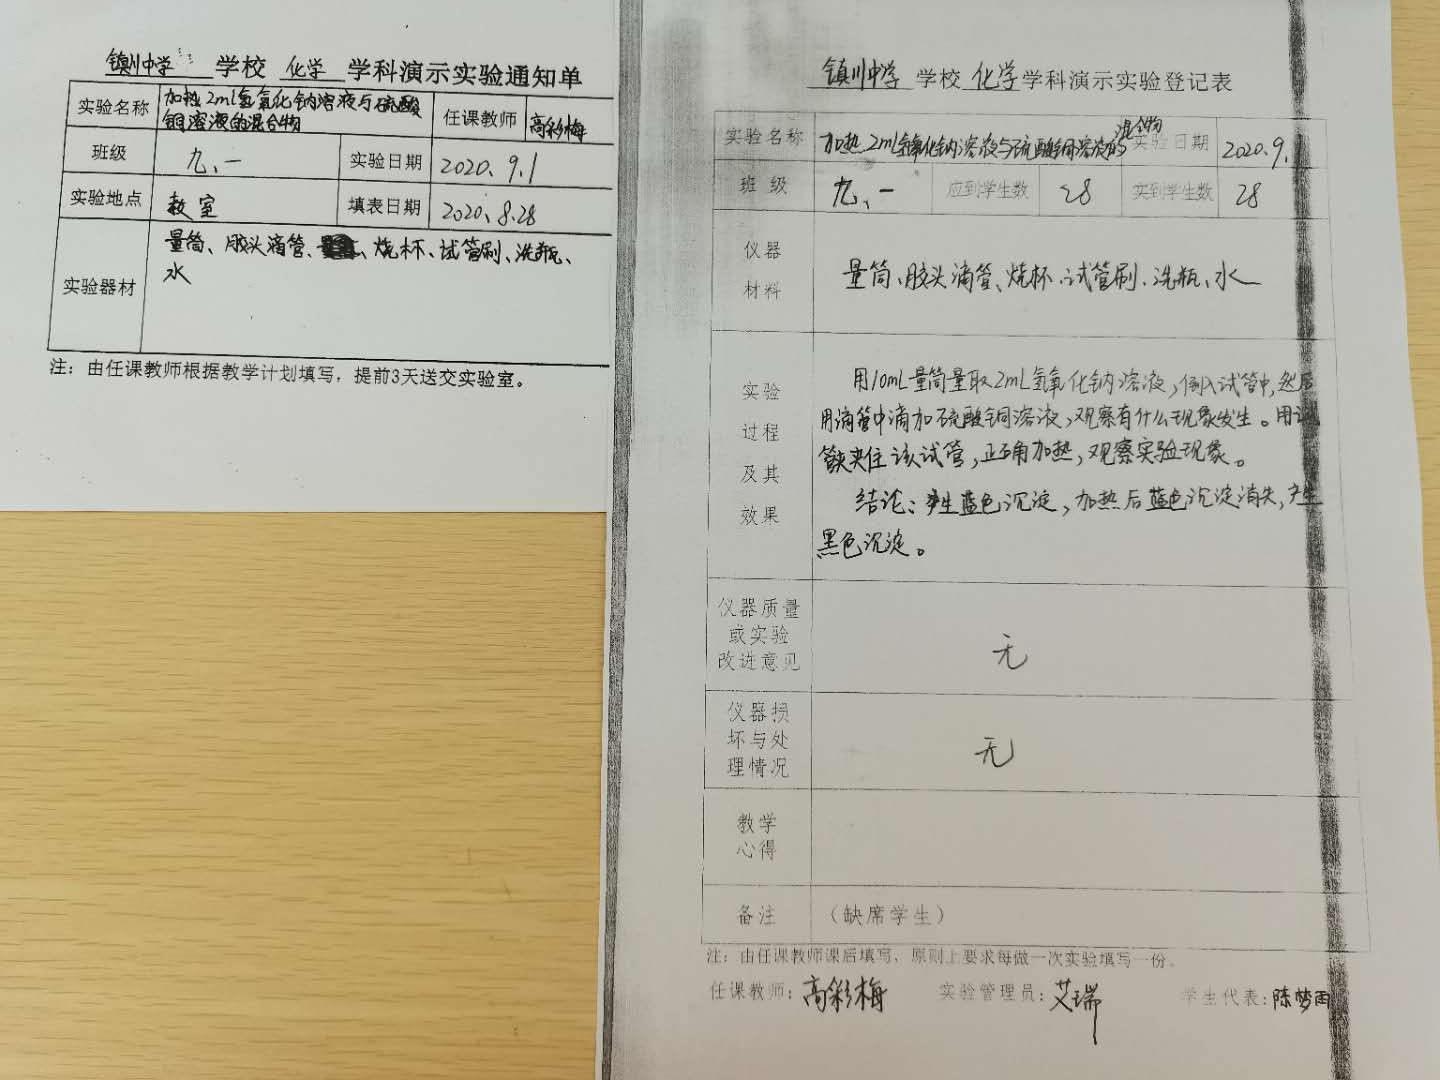 镇川中学 学校 化学 学科演示实验通知单
实验名称 加热2ml氢氧化钠溶液与硫酸铜溶液的混合物 任课教师 高彩梅
班级 九、一 实验日期 2020.9.1
实验地点 教室 填表日期 2020、8.28
实验器材 量筒、胶头滴管、烧杯、试管刷、洗瓶、
水
注：由任课教师根据教学计划填写，提前3天送交实验室。
镇川中学 学校 化学 学科演示实验登记表
实验名称 加热2ml氢氧化钠溶液与硫酸铜溶液的混合物 实验日期 2020、9.1
班级 九、一 应到学生数 28 实到学生数 28
仪器
材料
量筒、胶头滴管、烧杯、试管刷、洗瓶、水
实验
过程
及其
效果
用10mL量筒量取2mL氢氧化钠溶液，倒入试管中，然后
用滴管中滴加硫酸铜溶液，观察有什么现象发生。用试
管夹夹住该试管，正确加热，观察实验现象。
结论：产生蓝色沉淀，加热后蓝色沉淀消失，产生
黑色沉淀。
仪器质量
或实验
改进意见
无
仪器损
坏与处
理情况
无
教学
心得
备注 （缺席学生）
注：由任课教师课后填写，原则上要求每做一次实验填写一份。
任课教师：高彩梅 实验管理员：艾瑞 学生代表：陈梦雨